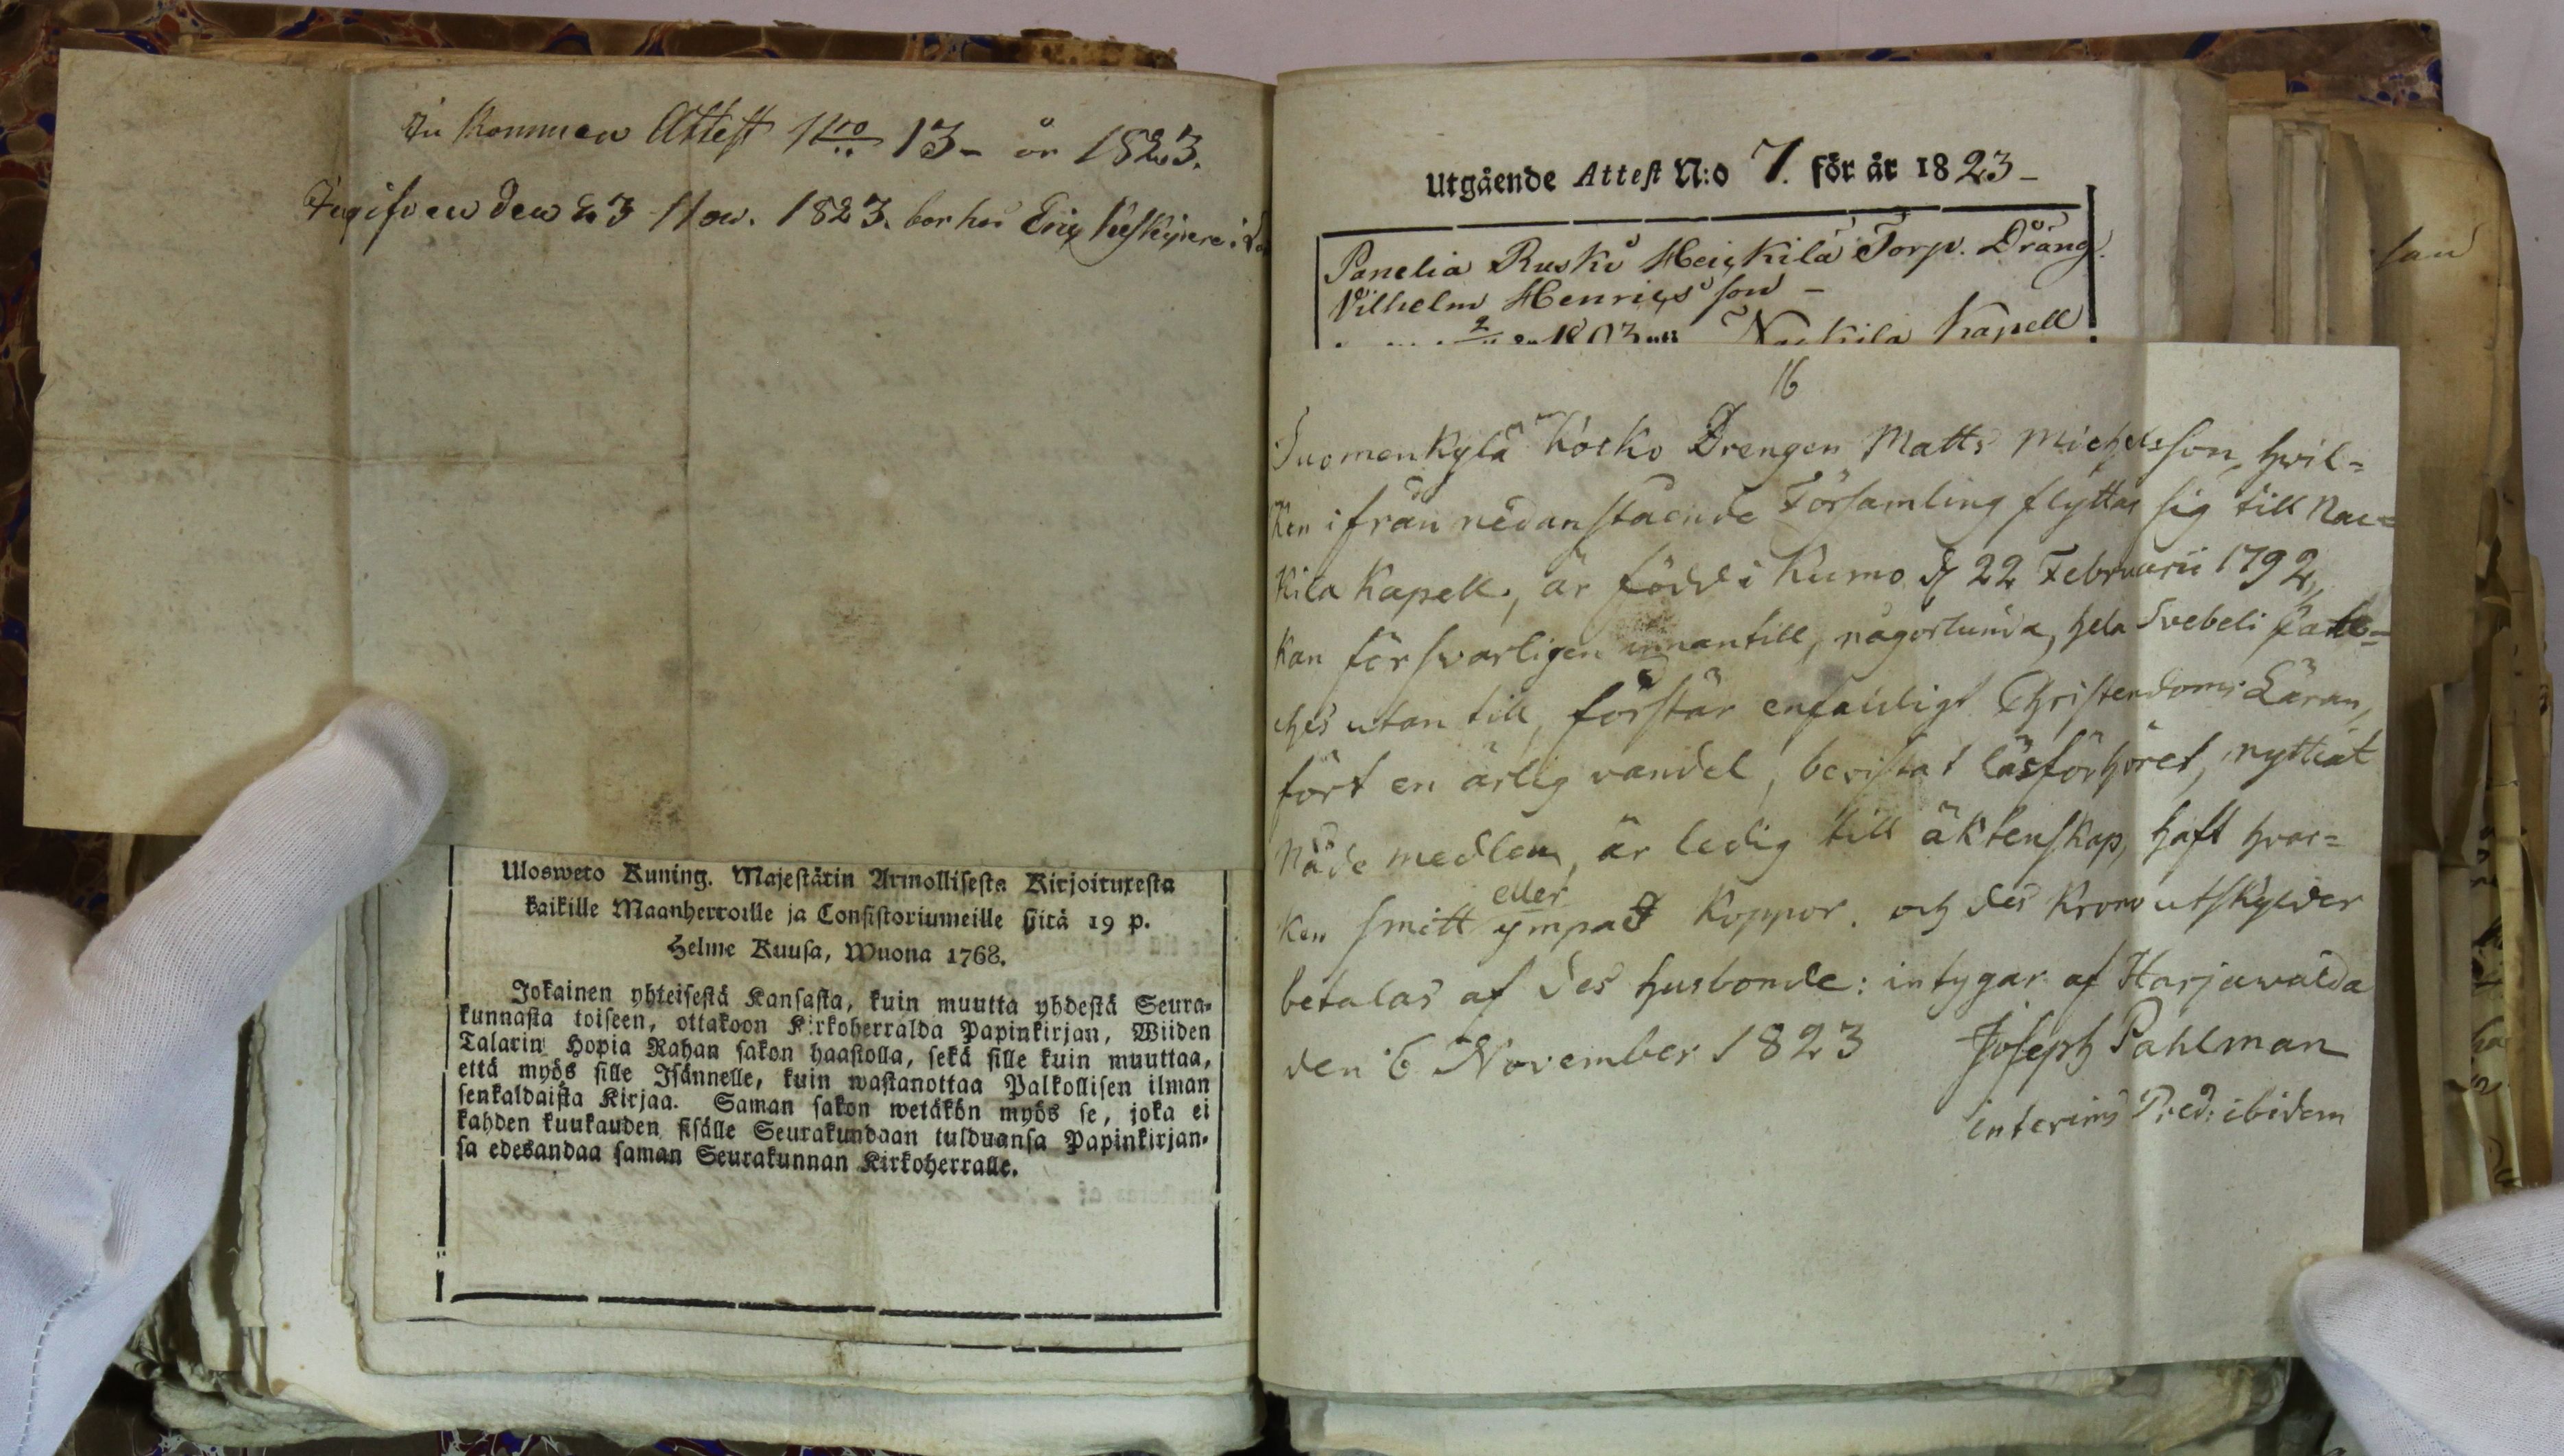 In Kommen Attest Nro 13 - år 1823.
Ingifven den 23 Nov. 1823. bor hos Eric
Ulosweto Kuning. Majestätin Armollisesta Kirjoituxesta
kaikille Maanherroille ja Consistoriumeille siitä 19 p.
Helme Kuusa, Wuona 1768.
Jokainen yhteisestä Kansasta, kuin muutta yhdestä Seura-
kunnasta toiseen, ottakoon Kirkoherralda Papinkirjan, Wiiden
Talarin Hopia Rahan sakon haastolla, sekä sille kuin muuttaa,
että myös sille Isännelle, kuin wastanottaa Palkollisen ilman
senkaldaista Kirjaa. Saman sakon wetäkön myös se, joka ei
kahden kuukauden sisälle Seurakundaan tulduansa Papinkirjan-
sa edesandaa saman Seurakunnan Kirkoherralle.
Utgående Attest N:o 7. för år 1823 -
Panelia Rusko Heickilä Torp. Dräng.
Vilhelm Henricsson -
1803 Nackila Kapell
16
Suomenkylä Kosko Drengen Matts Michelsson, hvil=
ken ifrån nedanstående Församling flyttar sig till Nac=
kila Kapell, är född i Kumo d. 22 Februarii 1792,
kan försvarligen innantill, någorlunda, hela Svebeli Cate=
ches utan till, förstår enfaldigt Christendoms Läran,
fört en ärlig vandel, bevistat läsförhöret, nyttiat
Nåde medlen, är ledig till äktenskap, haft hvar=
ken smitt eller ympad Koppor. och des Krono utskylder
betalas af des husbonde: intygar af Harjawalda
den 6 November 1823 Joseph Pahlman
interims Pred: ibidem